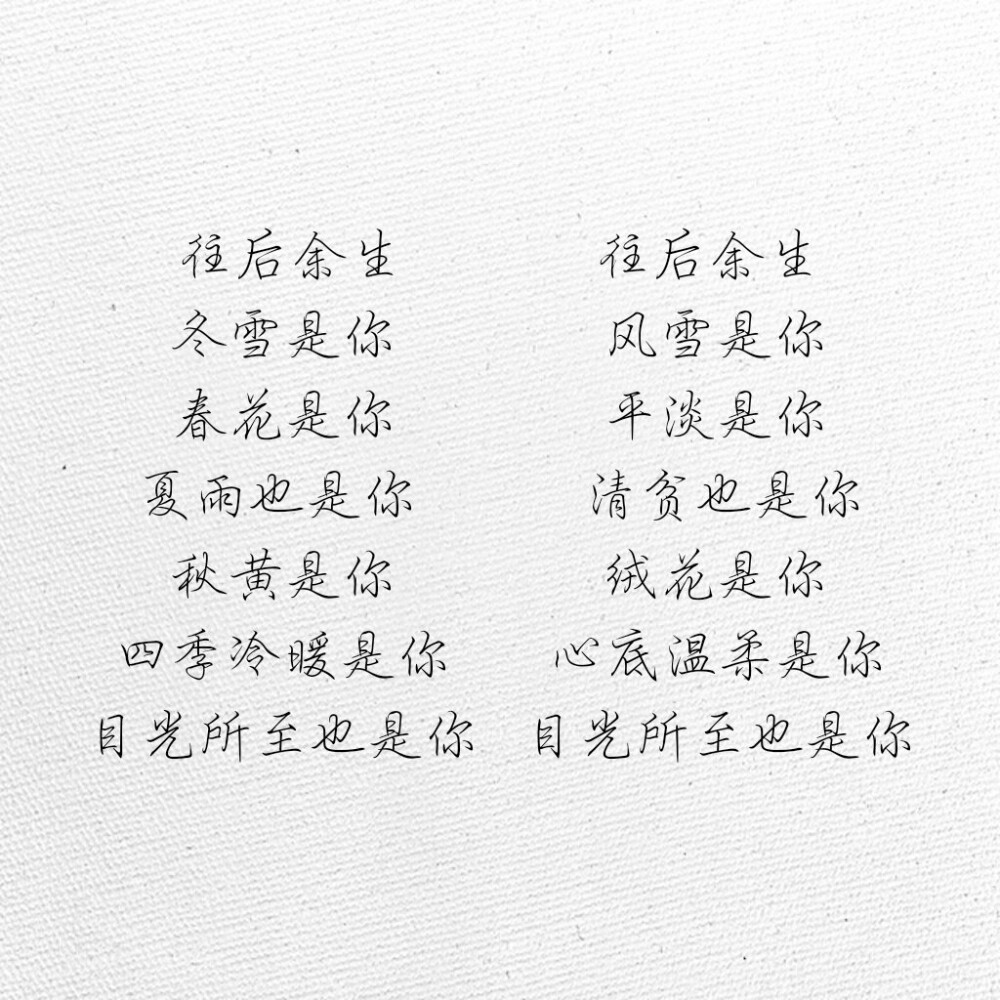 往后余生
冬雪是你
春花是你
夏雨也是你
秋黄是你
四季冷暖是你
目光所至也是你
往后余生
风雪是你
平淡是你
清贫也是你
绒花是你
心底温柔是你
目光所至也是你